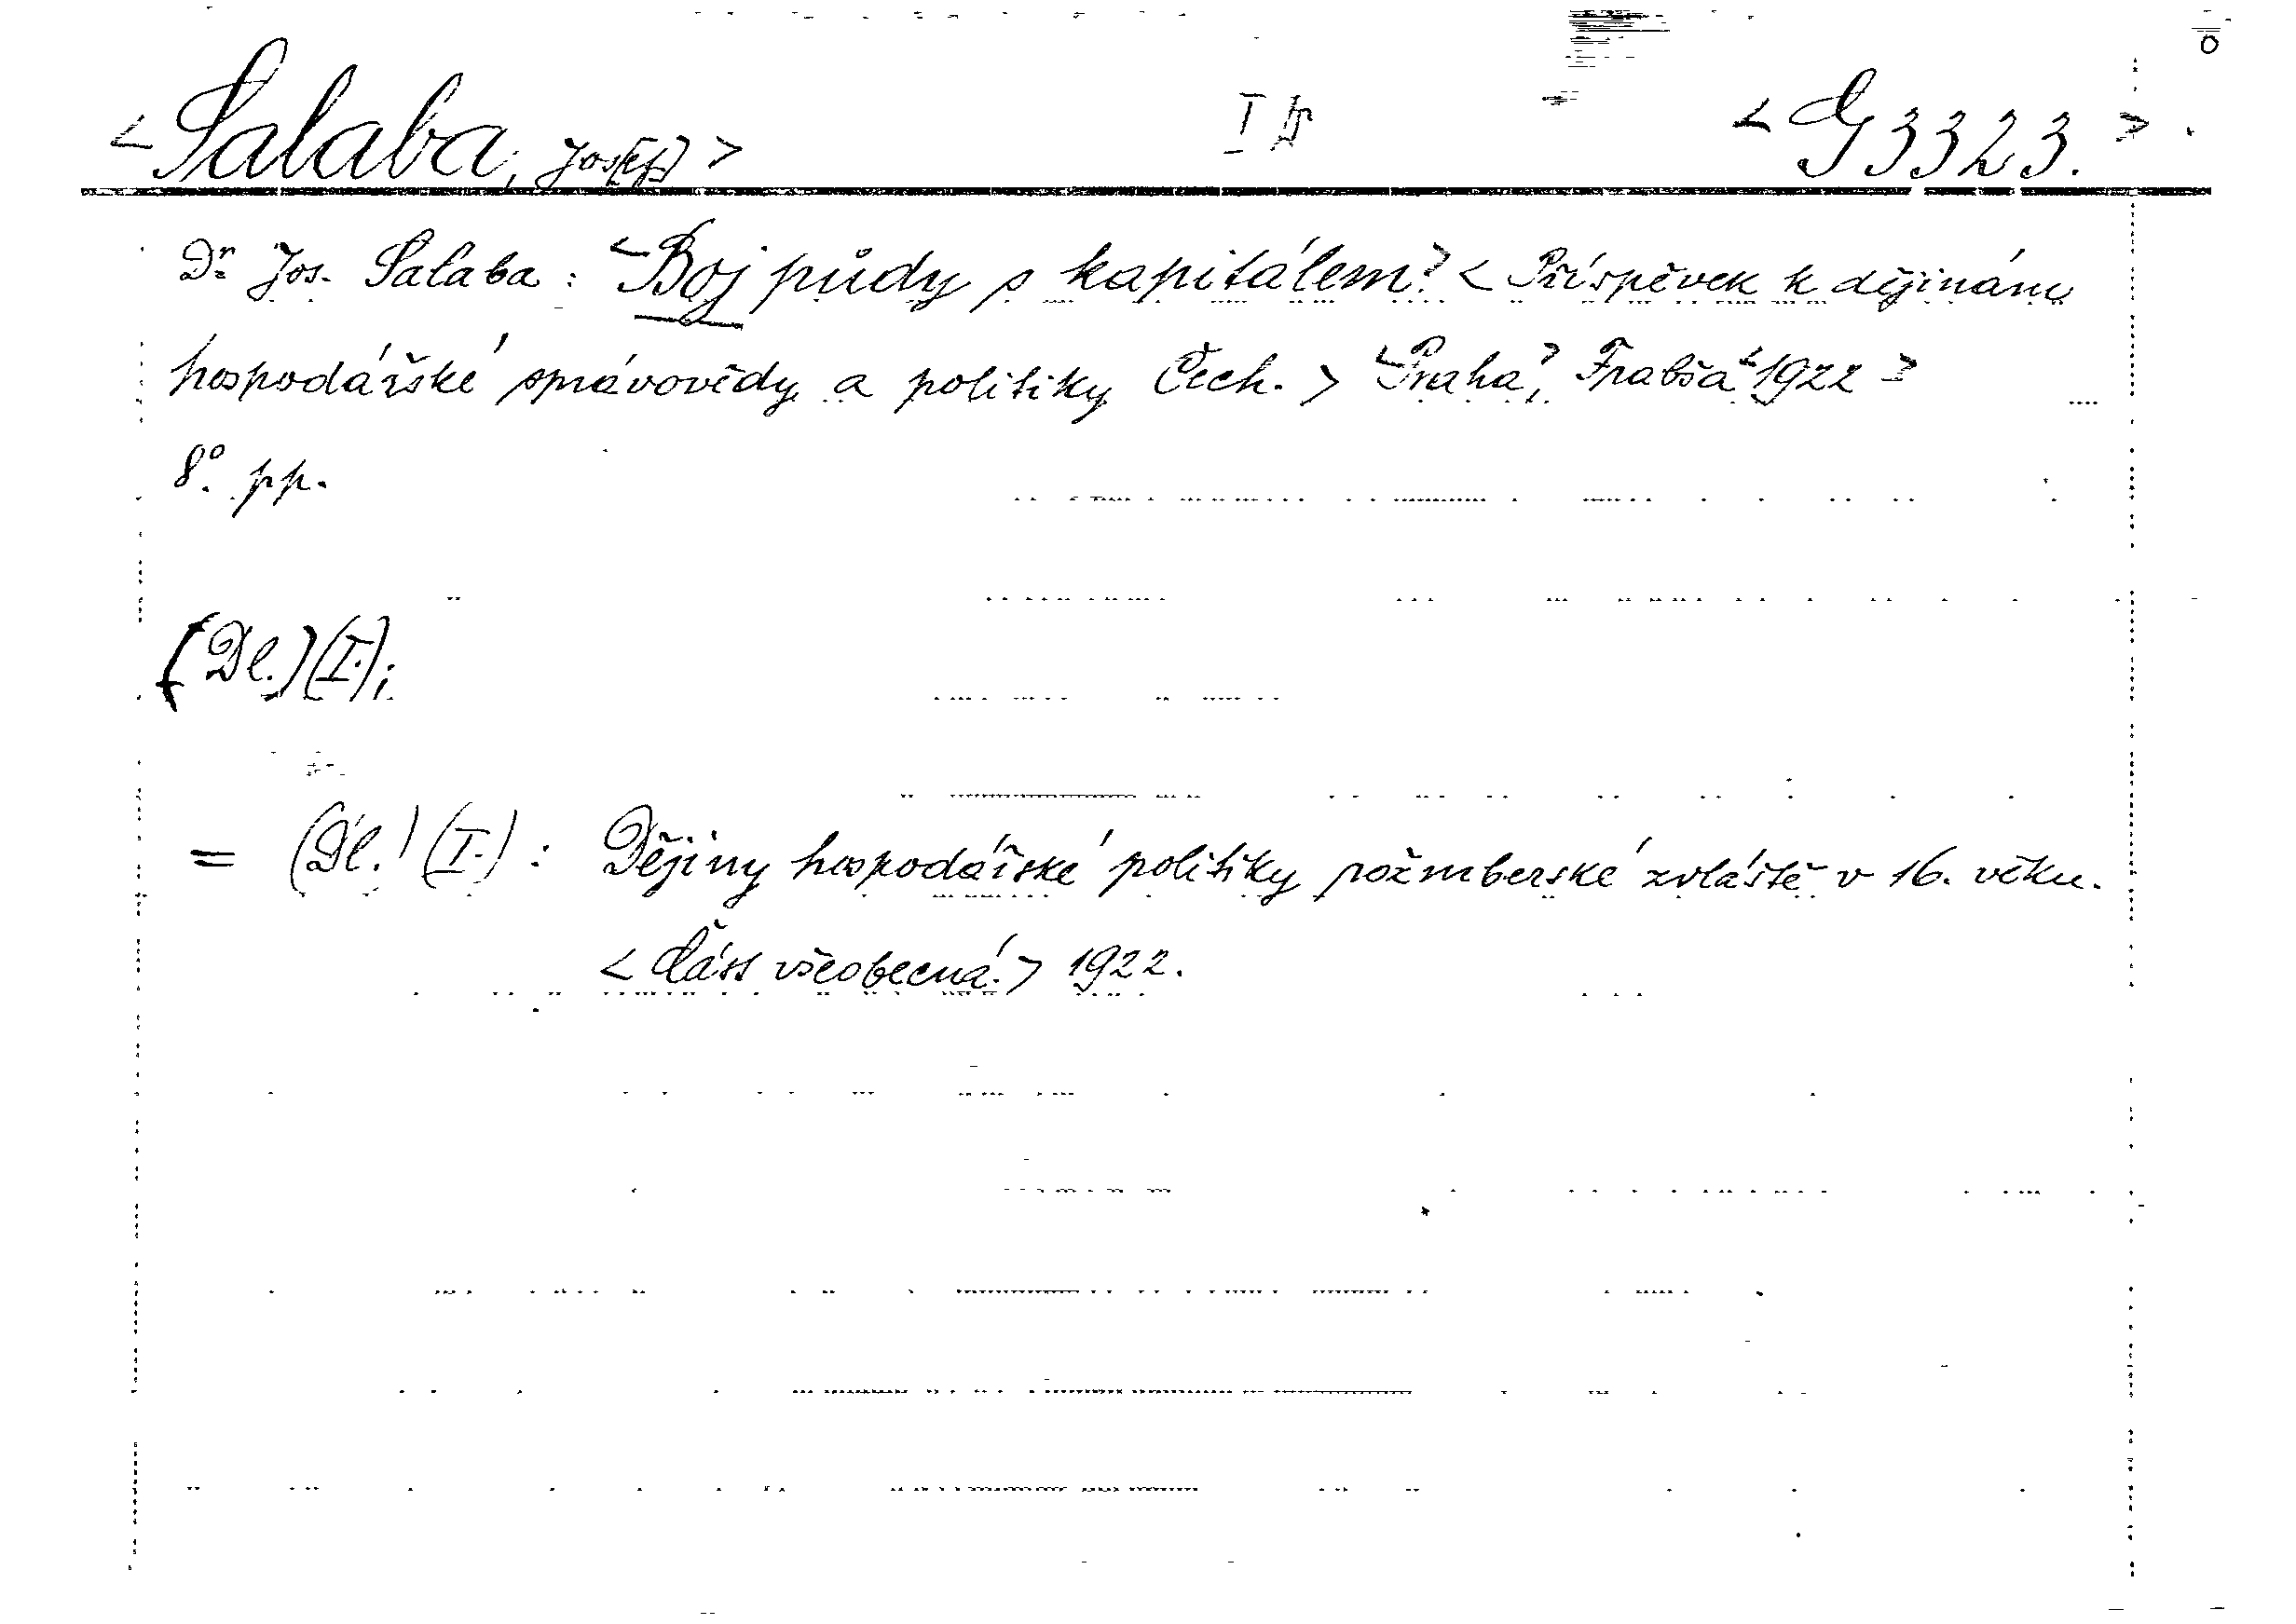 <Salaba, Jos[ef]> I <G 3323.>
Dr. Jos. Salaba: <Boj půdy s kapitálem> <Příspěvek k dějinám
hospodářské správovědy a politiky Čech.> <Praha>, Frabša <1922>
8°. pp.
(Dl.)(I.);
= (Dl.)(I.): Dějiny hospodářské politiky rožmberské zvláště v 16. věku.
<Část všeobecná.> 1922.